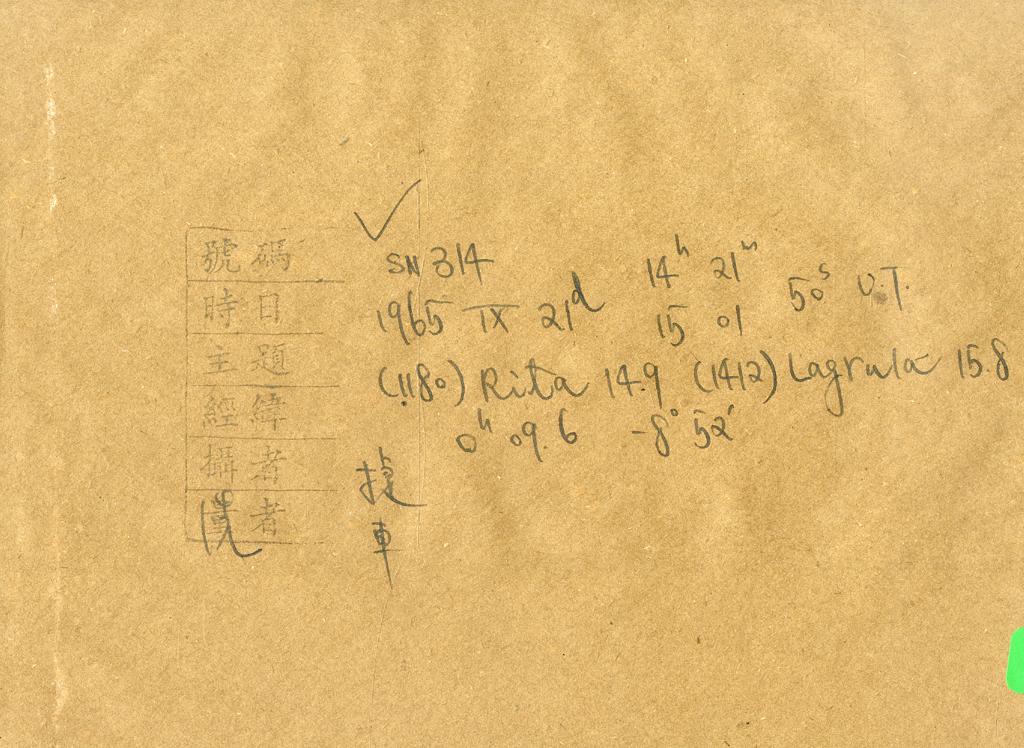 號碼 SN 314 14ʰ 21ᵐ
時日 1965 IX 21ᵈ 15 01 50ˢ U.T.
主題 (1180) Rita 14.9 (1412) Lagrula 15.8
經緯 0ʰ 09.6 -8° 52′
攝者
洗者 車